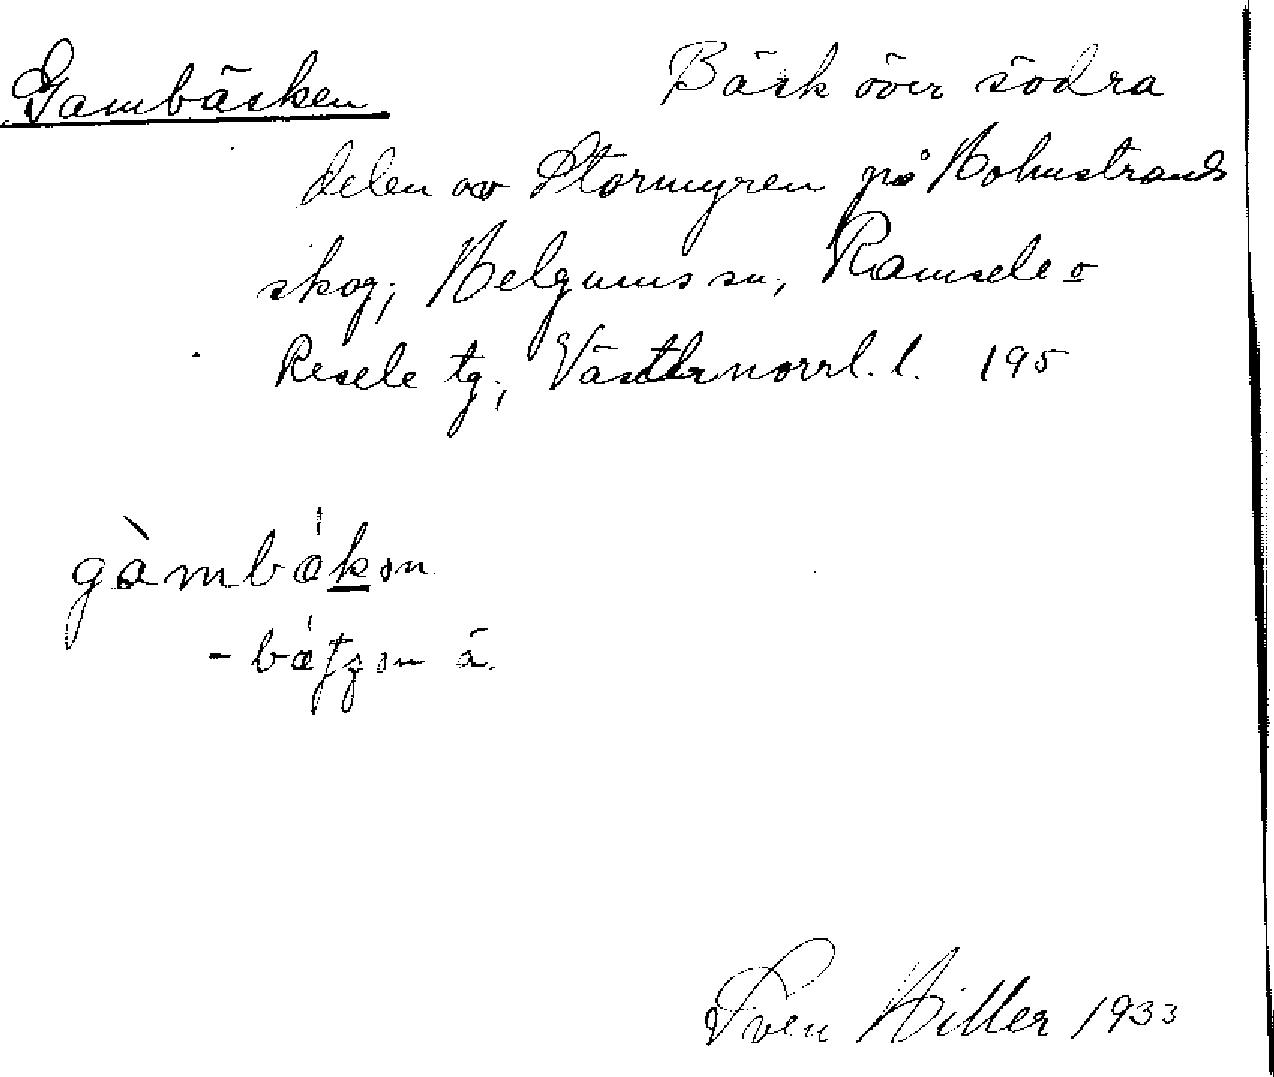 Gambäcken Bäck över södra
delen av Stormyren på Holmstrands
skog, Helgums sn, Ramsele o
Resele tg, Västernorrl. l. 195
gàmbä́kən
- bä́tʒən ä.
Sven Hiller 1933